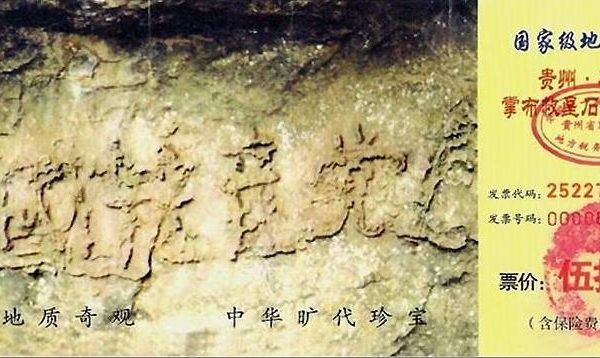 國共産党
地质奇观 中华旷代珍宝
国家级地
贵州·
掌布救星石
贵州省
地方税务
发票代码：25227
发票号码：0000
票价：伍
（含保险费